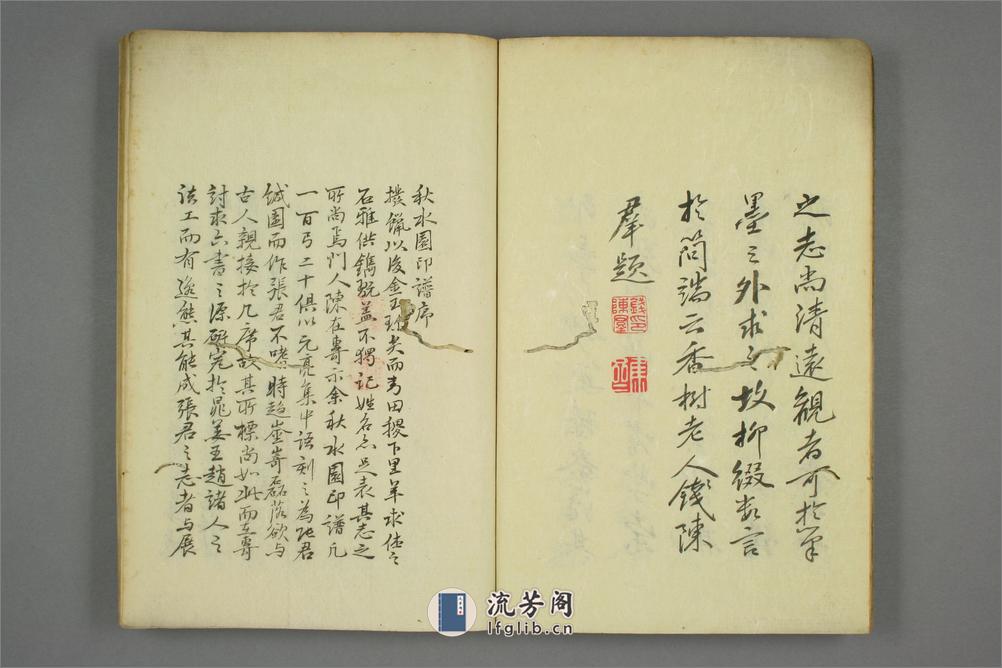 之志尚清遠觀者可於筆
墨之外求之故抑綴數言
於簡端云香樹老人錢陳
羣題
秋水園印譜序
撲獵以後金玉 矣而青田稷下里羊求佳之
石雅供鐫 蓋不獨記姓名亦足表其志之
所尚焉門人陳在專示余秋水園印譜凡
一百弓二十俱以元亮集中語刻之為張君
緘園而作張君不 時趨崟崎磊落欲與
古人親接於几席故其所標尚如此而在專
討求六書之源研究於晁姜王趙諸人之
法工而有逸態其能成張君之志者與展
流芳阁
lfglib.cn